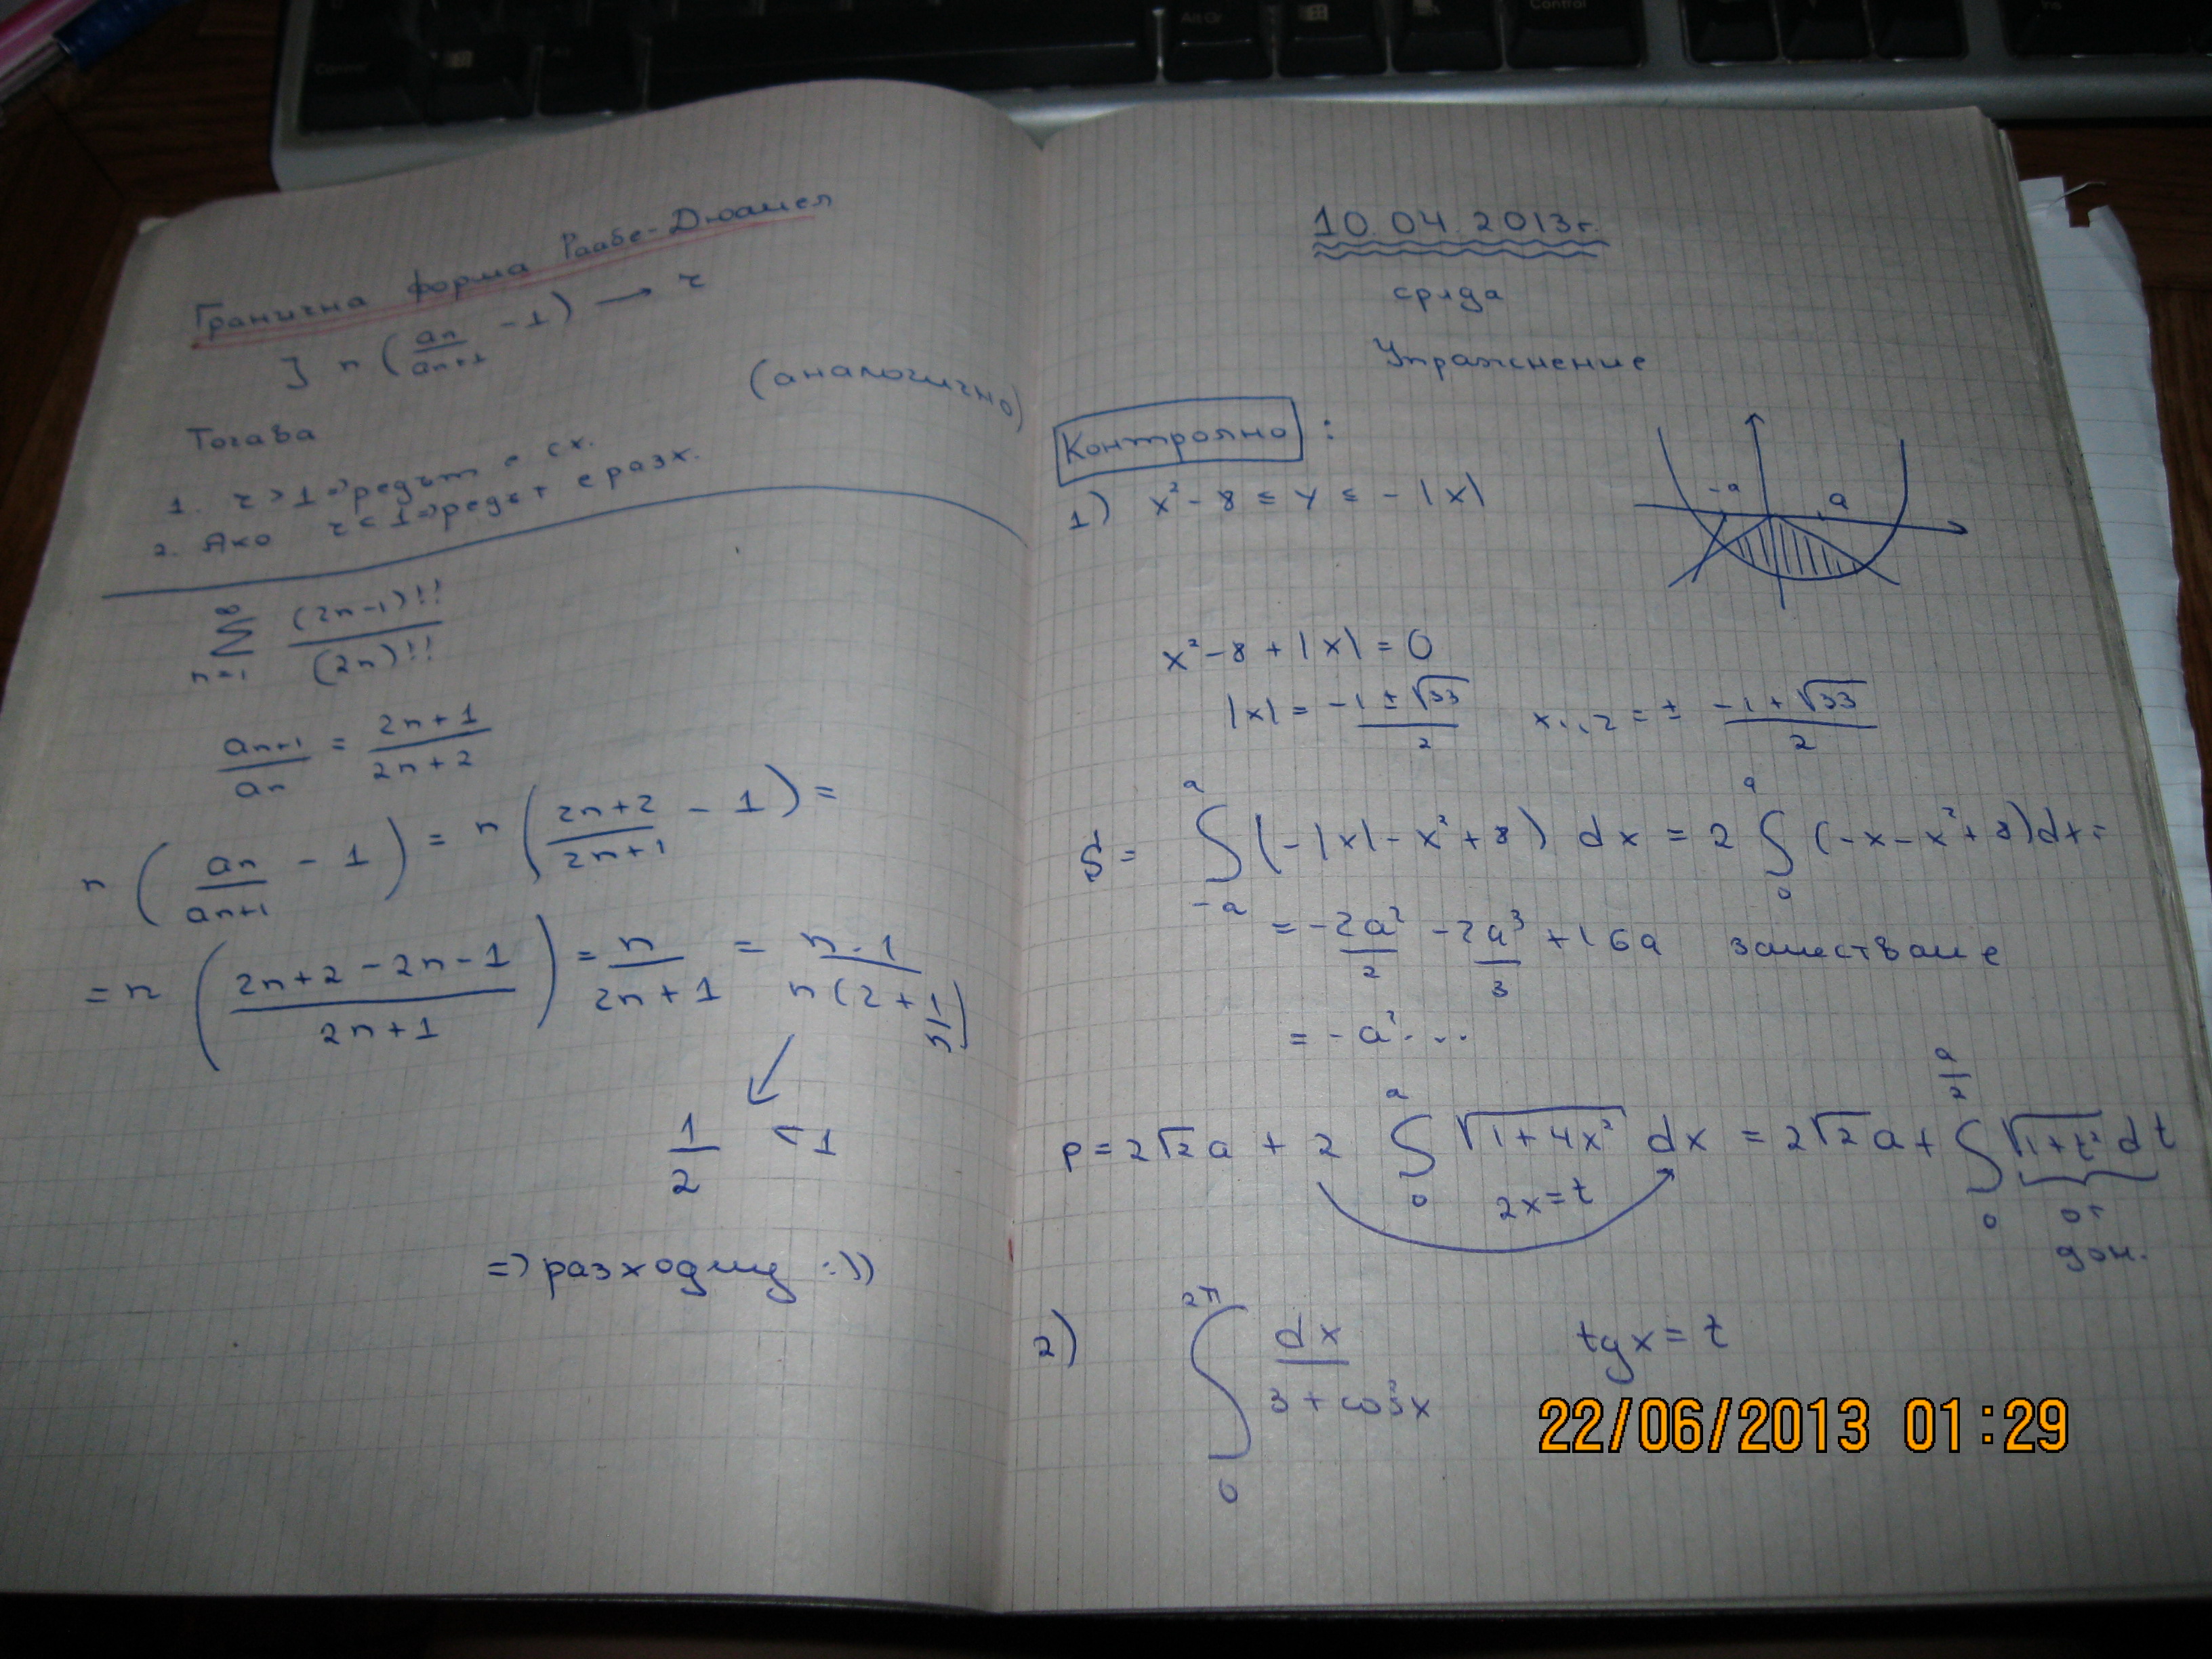 Гранична форма Раабе-Дюамел
∃ n (an/an+1 - 1) → r
(аналогично)
Тогава
1. r > 1 => редът е сх.
2. Ако r < 1 => редът е разх.
∞ ∑ n=1 (2n-1)!!/(2n)!!
an+1/an = 2n+1/2n+2
n (an/an+1 - 1) = n (2n+2/2n+1 - 1) =
= n (2n+2-2n-1/2n+1) = n/2n+1 = n.1/n(2+1/n)
↙
1/2 < 1
=> разходящ :))
10.04.2013г.
сряда
Упражнение
Контролно :
1) x² - 8 ≤ y ≤ -|x|
-a a
x² - 8 + |x| = 0
|x| = -1 ± √33/2 x1,2 = ± -1 + √33/2
S = ∫ -a a (-|x| - x² + 8) dx = 2 ∫ 0 a (-x - x² + 8) dx =
= -2a²/2 - 2a³/3 + 16a заместваме
= -a² ...
p = 2√2 a + 2 ∫ 0 a √1+4x² dx = 2√2 a + ∫ 0 a/2 √1+t² dt
2x = t
от
дом.
2) ∫ 0 2π dx/3 + cos²x tg x = t
22/06/2013 01:29